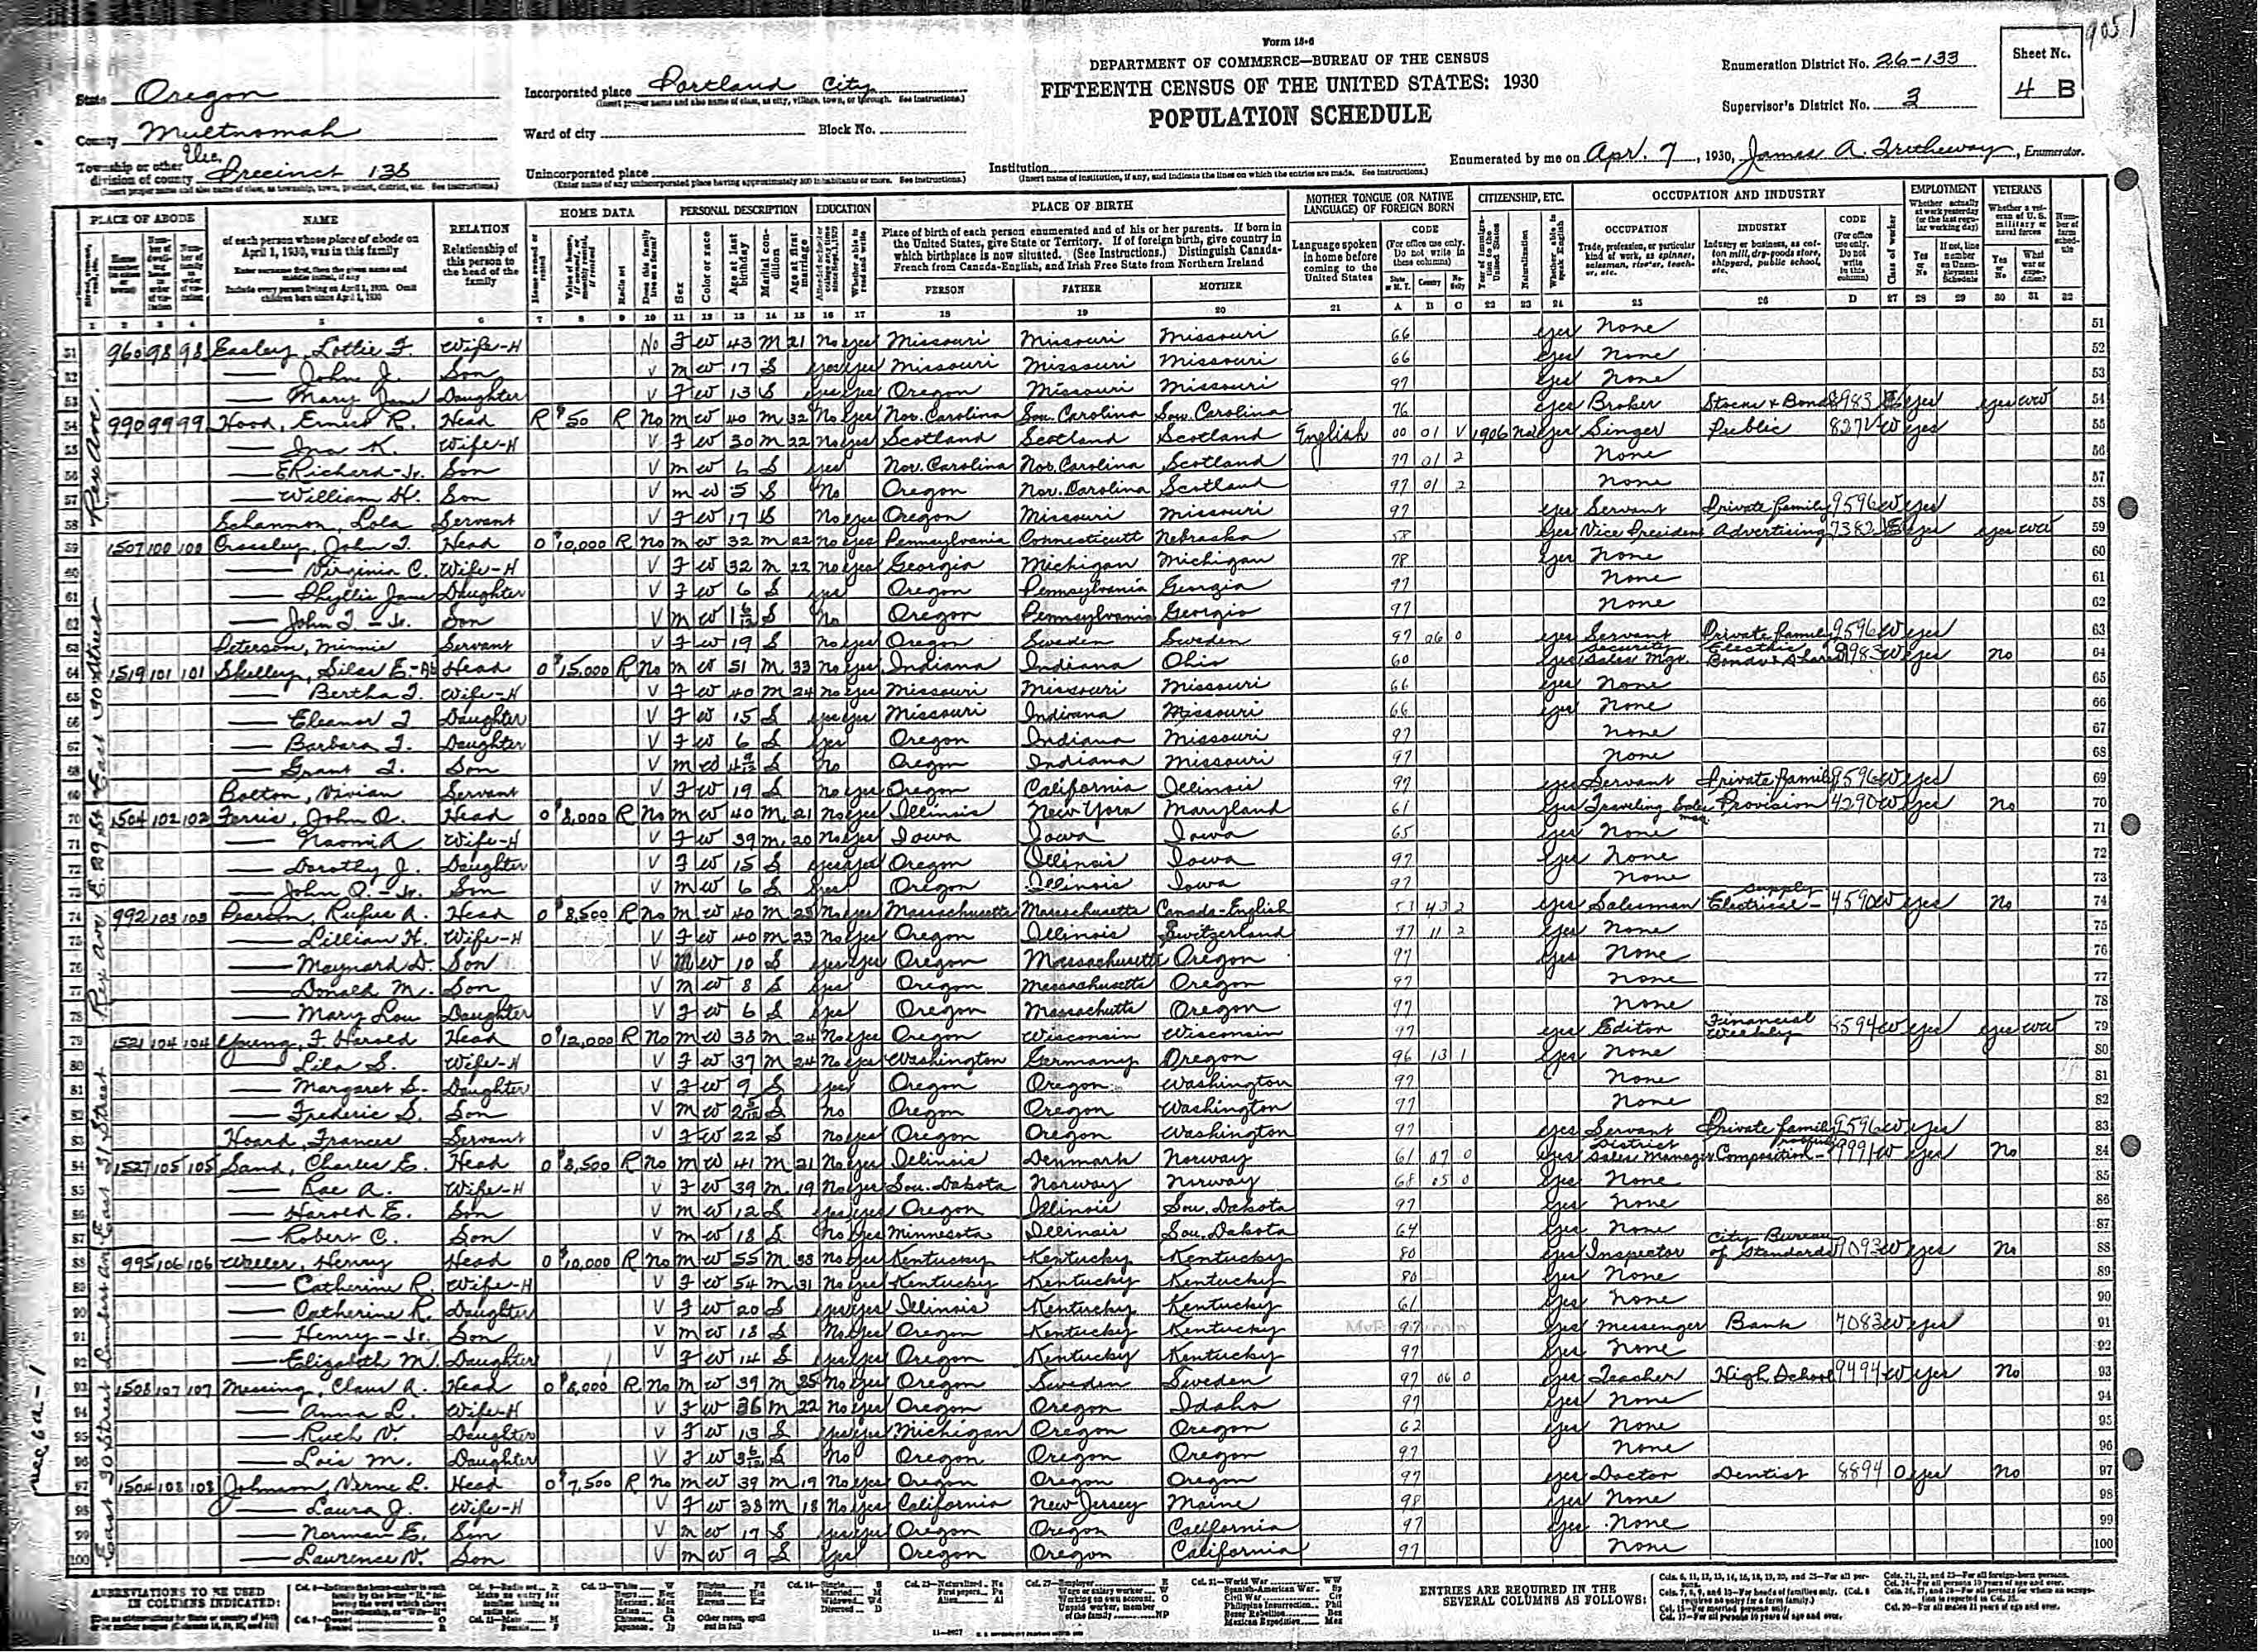 9051
Form 15-6
DEPARTMENT OF COMMERCE—BUREAU OF THE CENSUS
FIFTEENTH CENSUS OF THE UNITED STATES: 1930
POPULATION SCHEDULE
State Oregon
County Multnomah
Township or other division of county Elec. Precinct 138
Incorporated place Portland City
Ward of city Block No.
Unincorporated place
Institution
Enumeration District No. 26-133
Supervisor's District No. 3
Sheet No. 4 B
Enumerated by me on Apr. 7, 1930, James A. Tretheway, Enumerator.
PLACE OF ABODE NAME RELATION HOME DATA PERSONAL DESCRIPTION EDUCATION PLACE OF BIRTH MOTHER TONGUE (OR NATIVE LANGUAGE) OF FOREIGN BORN CITIZENSHIP, ETC. OCCUPATION AND INDUSTRY EMPLOYMENT VETERANS
of each person whose place of abode on April 1, 1930, was in this family
Relationship of this person to the head of the family
Place of birth of each person enumerated and of his or her parents. If born in the United States, give State or Territory. If of foreign birth, give country in which birthplace is now situated. (See Instructions.) Distinguish Canada-French from Canada-English, and Irish Free State from Northern Ireland
PERSON FATHER MOTHER
Language spoken in home before coming to the United States
CODE OCCUPATION INDUSTRY CODE
51 960 98 98 Easley, Lottie F. Wife-H No F W 43 M 21 No yes Missouri Missouri Missouri 66 yes None 51
52 — John J. Son V M W 17 S yes yes Missouri Missouri Missouri 66 yes None 52
53 — Mary Jane Daughter V F W 13 S yes yes Oregon Missouri Missouri 97 yes None 53
54 990 99 99 Hood, Ernest R. Head R $50 R No M W 40 M 32 No yes Nor. Carolina Sou. Carolina Sou. Carolina 76 yes Broker Stocks & Bonds 8983 E yes yes WW 54
55 — Ina K. Wife-H V F W 30 M 22 no yes Scotland Scotland Scotland English 00 01 V 1906 Na yes Singer Public 827V W yes 55
56 — E Richard-Jr. Son V M W 6 S yes Nor. Carolina Nor. Carolina Scotland 77 01 2 None 56
57 — William H. Son V M W 5 S No Oregon Nor. Carolina Scotland 97 01 2 None 57
58 Schannon, Lola Servant V F W 17 S No yes Oregon Missouri Missouri 97 yes Servant Private family 9596 W yes 58
59 1507 100 100 Crossley, John T. Head O $10,000 R No M W 32 M 22 no yes Pennsylvania Connecticutt Nebraska 58 yes Vice President Advertising 7382 E yes yes WW 59
60 — Virginia C. Wife-H V F W 32 M 22 no yes Georgia Michigan Michigan 78 yes None 60
61 — Phyllis Jane Daughter V F W 6 S yes Oregon Pennsylvania Georgia 97 None 61
62 — John T - Jr. Son V M W 1 6/12 S No Oregon Pennsylvania Georgia 97 None 62
63 Peterson, Minnie Servant V F W 19 S no yes Oregon Sweden Sweden 97 06 0 yes Servant Private family 9596 W yes 63
64 1519 101 101 Skelley, Silas E.-Ab Head O $15,000 R No M W 51 M 33 no yes Indiana Indiana Ohio 60 yes Security Sales Mgr. Electric Bonds & Shares 8983 W yes no 64
65 — Bertha T. Wife-H V F W 40 M 24 no yes Missouri Missouri Missouri 66 yes None 65
66 — Eleanor T Daughter V F W 15 S yes yes Missouri Indiana Missouri 66 yes None 66
67 — Barbara T. Daughter V F W 6 S yes Oregon Indiana Missouri 97 None 67
68 — Grant T. Son V M W 4 9/12 S no Oregon Indiana Missouri 97 None 68
69 Bolton, Vivian Servant V F W 19 S no yes Oregon California Illinois 97 yes Servant Private family 9596 W yes 69
70 1504 102 102 Ferris, John Q. Head O $8,000 R No M W 40 M 21 No yes Illinois New York Maryland 61 yes Traveling Sales man Provision 4290 W yes No 70
71 — Naomi A Wife-H V F W 39 M 20 no yes Iowa Iowa Iowa 65 yes None 71
72 — Dorothy J. Daughter V F W 15 S yes yes Oregon Illinois Iowa 97 yes None 72
73 — John Q.-Jr. Son V M W 6 S yes Oregon Illinois Iowa 97 None 73
74 992 103 103 Pearson, Rufus A. Head O $8,500 R No M W 40 M 23 No yes Massachusetts Massachusetts Canada-English 53 43 2 yes Salesman Electrical-supply 4590 W yes No 74
75 — Lillian H. Wife-H V F W 40 M 23 No yes Oregon Illinois Switzerland 97 11 2 yes None 75
76 — Maynard D. Son V M W 10 S yes yes Oregon Massachusetts Oregon 97 yes None 76
77 — Donald M. Son V M W 8 S yes Oregon Massachusetts Oregon 97 None 77
78 — Mary Lou Daughter V F W 6 S yes Oregon Massachutts Oregon 97 None 78
79 1521 104 104 Young, F Harold Head O $12,000 R No M W 38 M 24 No yes Oregon Wisconsin Wisconsin 97 yes Editor Financial Weekly 8594 W yes yes WW 79
80 — Lila S. Wife-H V F W 37 M 24 No yes Washington Germany Oregon 96 13 1 yes None 80
81 — Margaret S. Daughter V F W 9 S yes Oregon Oregon Washington 97 None 81
82 — Frederic S. Son V M W 2 5/12 S no Oregon Oregon Washington 97 None 82
83 Hoard, Frances Servant V F W 22 S No yes Oregon Oregon Washington 97 yes Servant Private family 9596 W yes 83
84 1527 105 105 Sand, Charles E. Head O $8,500 R No M W 41 M 21 No yes Illinois Denmark Norway 61 07 0 yes District Sales Manager Composition-roofing 9991 W yes No 84
85 — Rae A. Wife-H V F W 39 M 19 No yes Sou. Dakota Norway Norway 68 05 0 yes None 85
86 — Harold E. Son V M W 12 S yes yes Oregon Illinois Sou. Dakota 97 yes None 86
87 — Robert C. Son V M W 18 S No yes Minnesota Illinois Sou. Dakota 64 yes None 87
88 995 106 106 Waller, Henry Head O $10,000 R No M W 55 M 33 No yes Kentucky Kentucky Kentucky 80 yes Inspector City Bureau of Standards 9093 W yes No 88
89 — Catherine R. Wife-H V F W 54 M 31 No yes Kentucky Kentucky Kentucky 80 yes None 89
90 — Catherine R. Daughter V F W 20 S yes yes Illinois Kentucky Kentucky 61 yes None 90
91 — Henry-Jr. Son V M W 18 S No yes Oregon Kentucky Kentucky 97 yes Messenger Bank 7083 W yes 91
92 — Elizabeth M. Daughter V F W 14 S yes yes Oregon Kentucky Kentucky 97 yes None 92
93 1508 107 107 Messing, Claus A. Head O $8,000 R No M W 39 M 25 No yes Oregon Sweden Sweden 97 06 0 yes Teacher High School 9494 W yes No 93
94 — Anna L. Wife-H V F W 36 M 22 no yes Oregon Oregon Idaho 97 yes None 94
95 — Ruth V. Daughter V F W 13 S yes yes Michigan Oregon Oregon 62 yes None 95
96 — Lois M. Daughter V F W 3 6/12 S No Oregon Oregon Oregon 97 None 96
97 1504 108 108 Johnson, Verne L. Head O $7,500 R No M W 39 M 19 No yes Oregon Oregon Oregon 97 yes Doctor Dentist 8894 O yes No 97
98 — Laura J. Wife-H V F W 38 M 18 No yes California New Jersey Maine 98 yes None 98
99 — Norman E. Son V M W 17 S yes yes Oregon Oregon California 97 yes None 99
100 — Lawrence V. Son V M W 9 S yes Oregon Oregon California 97 None 100
Rex Ave.
East 30 Street
E. 29 St
Rex Ave
East 31 Street
Lambert Ave
East 30 Street
ABBREVIATIONS TO BE USED IN COLUMNS INDICATED:
ENTRIES ARE REQUIRED IN THE SEVERAL COLUMNS AS FOLLOWS: